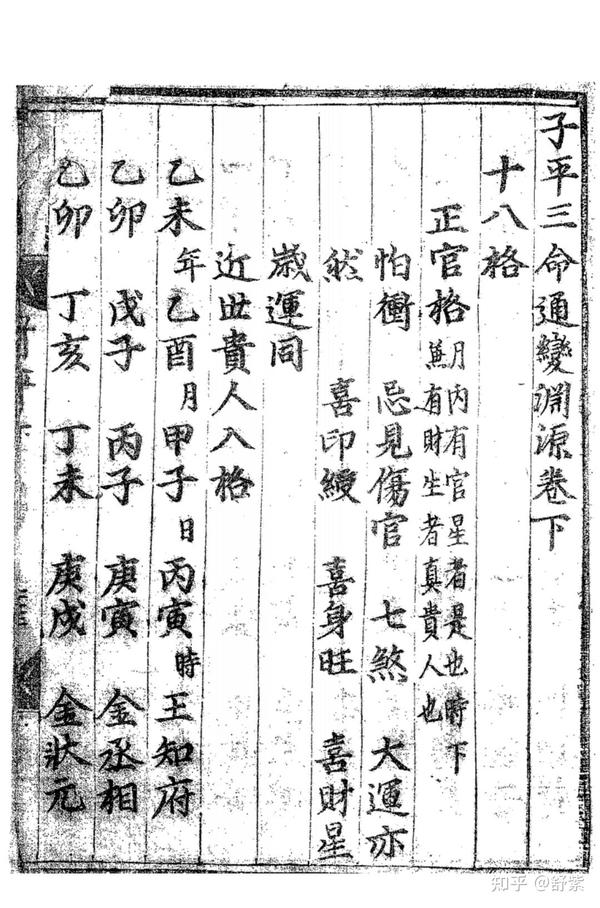 子平三命通變淵源卷下
十八格
正官格 月内有官星者是也時下
兼有財生者真貴人也
怕衝 忌見傷官 七煞 大運亦
然 喜印綬 喜身旺 喜財星
歲運同
近世貴人入格
乙未年 乙酉月 甲子日 丙寅時 王知府
乙卯 戊子 丙子 庚寅 金丞相
乙卯 丁亥 丁未 庚戌 金狀元
知乎 @舒紫